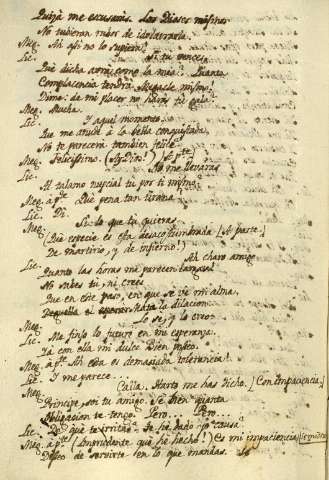 Quizá me escusarais. Los Dioses mismos
No pudieran mas de idolatrarla.
Meg. Ah si no lo supiera!
Lic. Si tu vences
Qué dicha como la mia! Quanta
Complacencia tendrá Megacle mismo!
Dime: de mi placer no harás tu gala?
Meg. Mucha.
Lic. Y aquel momento
Que me anuda à la bella conquistada
No te parecerá tambien felice?
Meg. Felicissimo. (Oh Dios!) à pte
Lic. No me llevarás
Al talamo nupcial tu por ti mismo?
Meg. à pte. Qué pena tan tirana
Lic. Di.
Meg. Si: lo que tu quieras.
(Que especie es esta desacostumbrada (à parte)
De martirio, y de infierno!)
Lic. Ah charo amigo
Quanto las horas me parecen largas!
No sabes tu, ni crees
Que en este paso, en que se vé mi alma,
la dilacion
Meg. Lo sé, y lo creo.
Lic. Me finjo lo futuro en mi esperanza.
Ya con ella mi dulce bien
Meg. à p. Ah esta es demasiada tolerancia!
Lic. Y me parece
Meg. Calla. Harto me has dicho. (Con impaciencia)
Principe, soi tu amigo. Se bien quanta
Obligacion te tengo. Pero... Pero...
Lic. De qué te irritas? Te he dado yo causa?
Meg. à pte (Imprudente qué he hecho!) Es mi impaciencia
Deseo de servirte en lo que mandas.